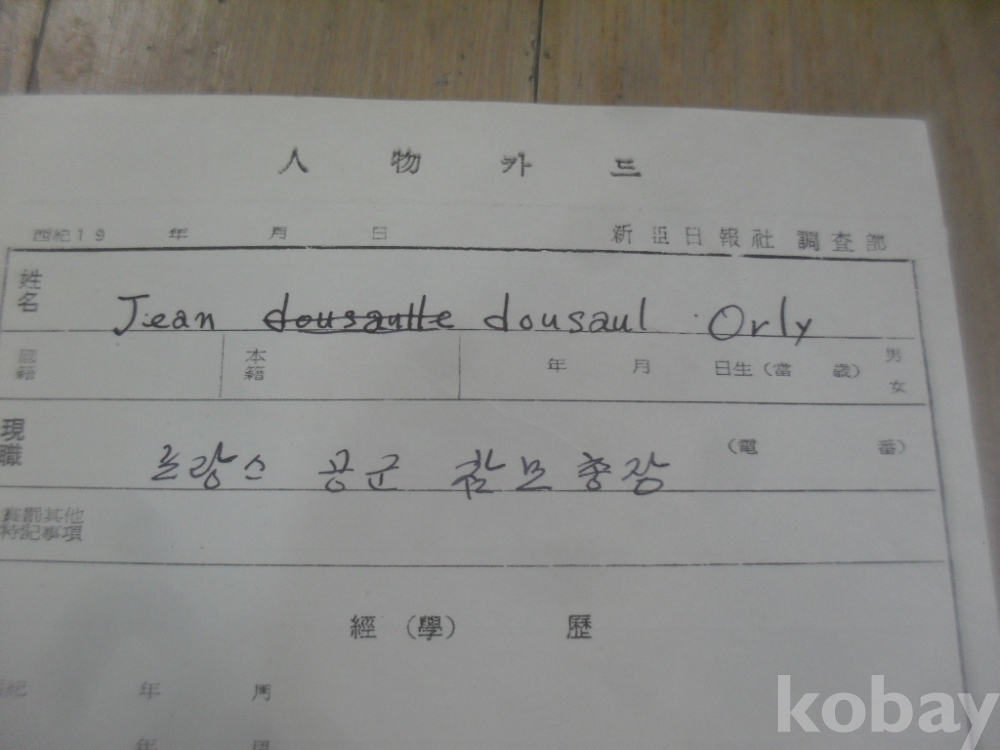 人物카드
西紀19 年 月 日 新亞日報社 調査部
姓名 Jean dousaulle dousaul Orly
國籍 本籍 年 月 日生(當 歲) 男 女
現職 프랑스 공군 참모총장 (電 番)
賞罰其他
特記事項
經(學) 歷
西紀 年 月
年 月
kobay